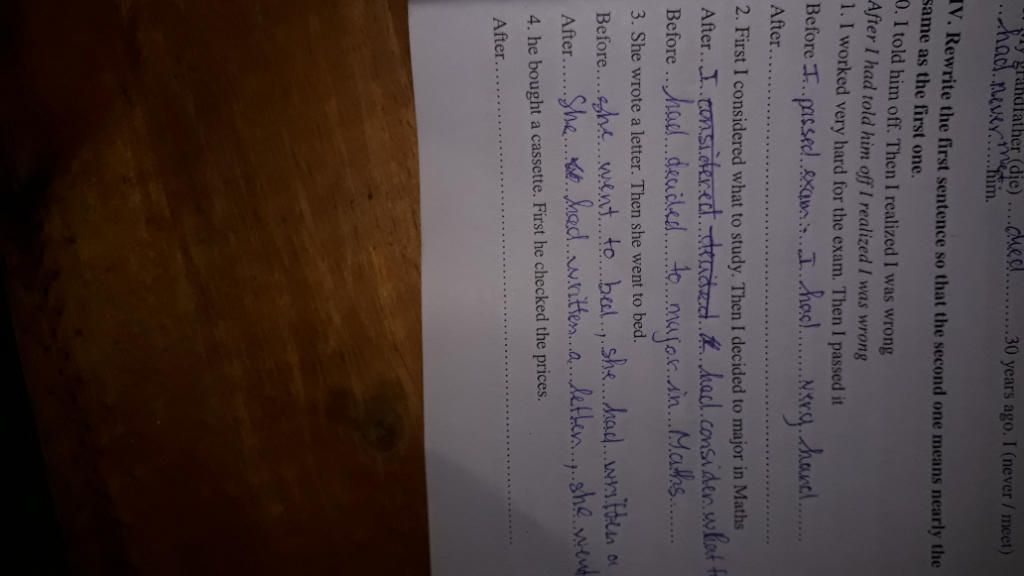 grandfather (die) ....died............30 years ago. I (never / meet)
...had..never..met....him.
IV. Rewrite the first sentence so that the second one means nearly the
same as the first one.
0. I told him off. Then I realized I was wrong
After I had told him off I realized I was wrong
1. I worked very hard for the exam. Then I passed it
Before I..passed..exam..,..I..had.........very hard......
After........................................................
2. First I considered what to study. Then I decided to major in Maths
After..I..considered..decided had considen what t
Before ...had...decided......to major..in....Maths......
3. She wrote a letter. Then she went to bed.
Before....she...went...to...bed..,.she..had...written a
After......She....had..written..a..letten..,.she went
4. he bought a cassette. First he checked the prices.
After........................................................